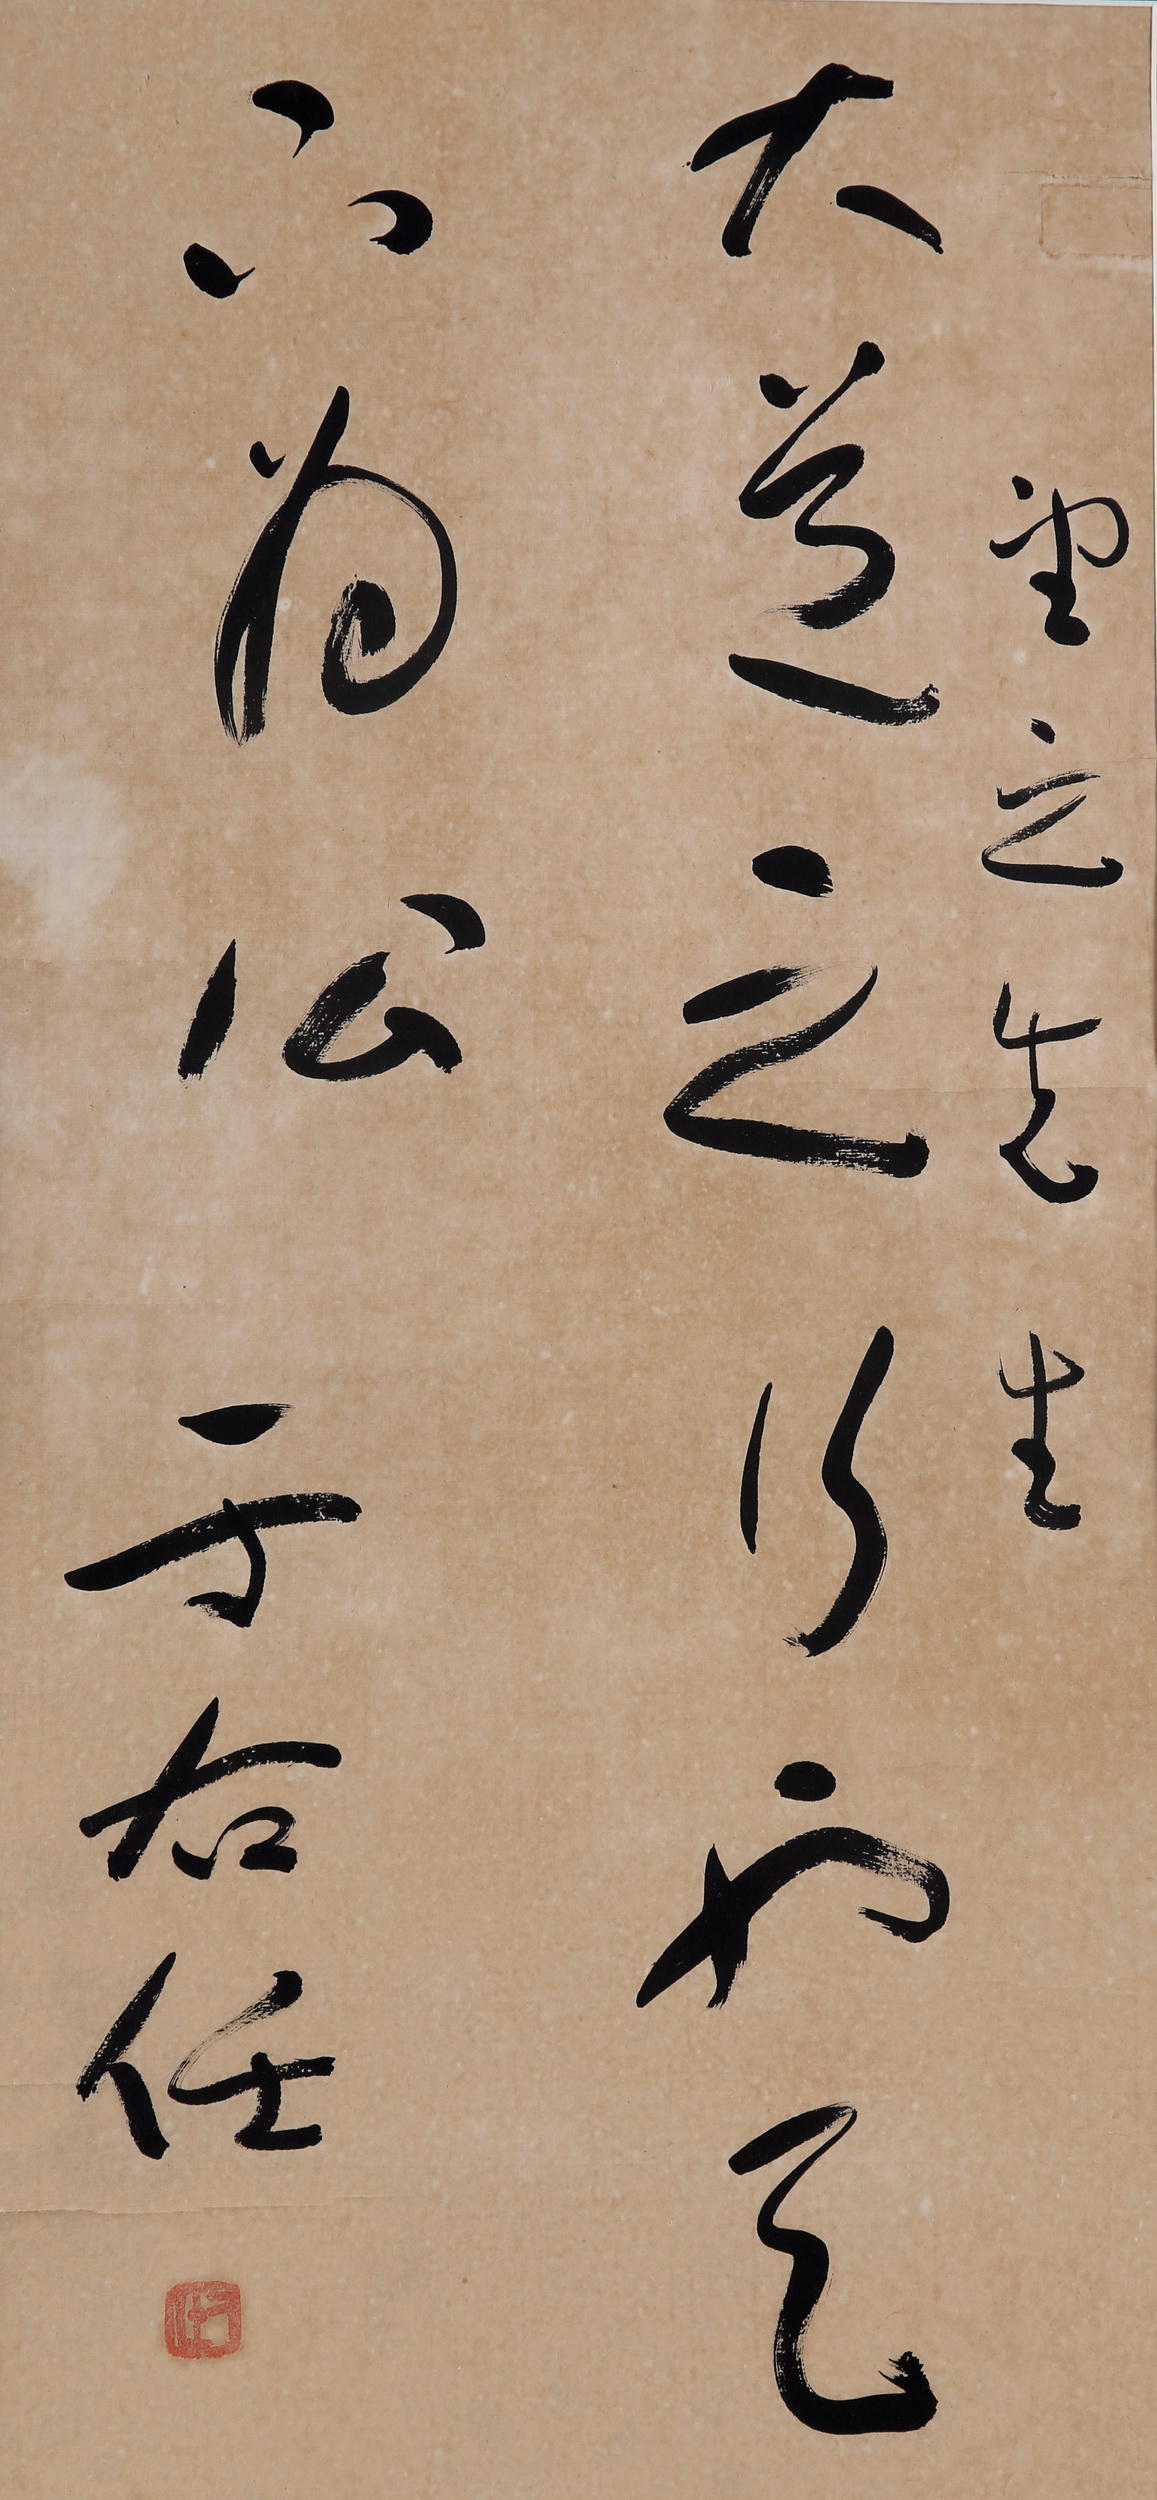 望之先生
大道之行也天
下為公 于右任